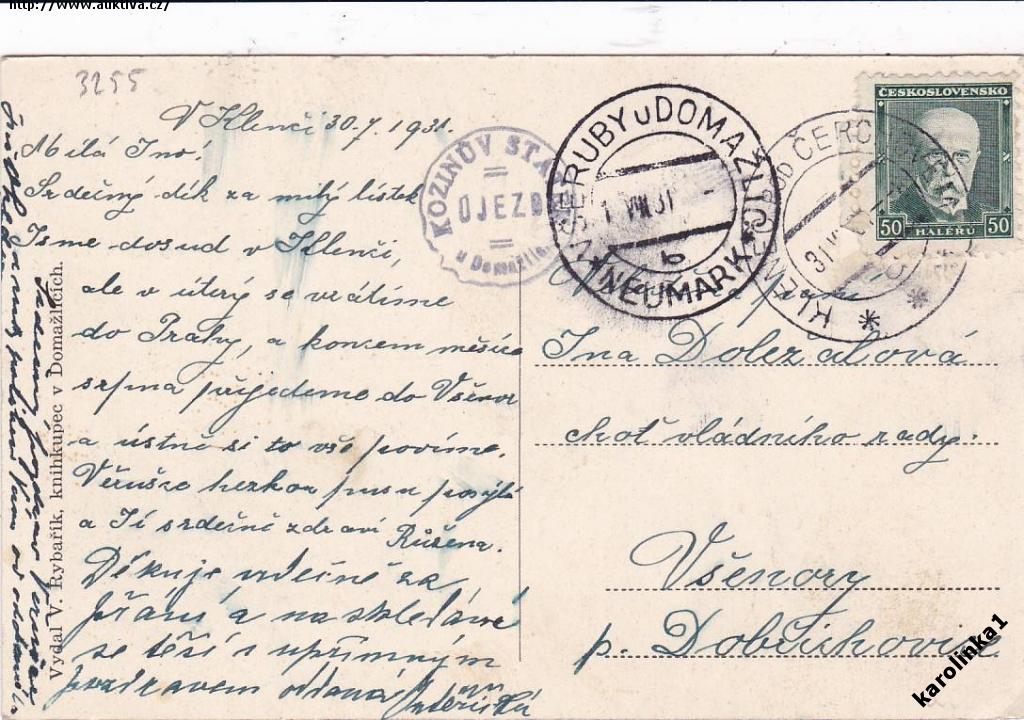 http://www.auktiva.cz/
3255
V Klenčí 30.7.1931.
Milá Ino!
Srdečný dík za milý lístek
Jsme dosud v Klenčí,
ale v úterý se vrátíme
do Prahy, a koncem měsíce
srpna přijedeme do Všenor
a ústně si to vše povíme.
Věrušce hezkou pusu posýlá
a Tí srdečně zdraví Růžena.
Děkuje vděčně za
přání a na shledanou
se těší s upřímným
pozdravem oddaná
Vydal V. Rybařík, knihkupec v Domažlicích.
KOZINŮV STA
ÚJEZD
u Domažlic
VŠERUBY u DOMAŽLIC
1 VIII 31
b
* NEUMARK *
KLENČÍ POD ČERCHOVEM
31
* *
ČESKOSLOVENSKO
50 HALÉŘŮ 50
paní
Ina Doležalová
choť vládního rady.
Všenory
p. Dobřichovice
karolinka1